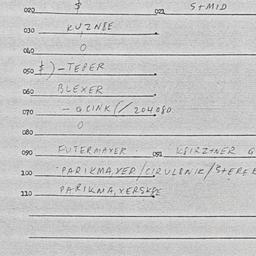 020 $ 021 S+MID
030 KUZNBE
040 O
050 $) -TEPER
060 BLEXER
070 - GLINK(/204,080
080 O
090 FUTERMAYER. 091 KPIRZ+NER G
100 PARIKMAXER/CIRULENIK/S+ERER
110 PARIKMAXERSKBE